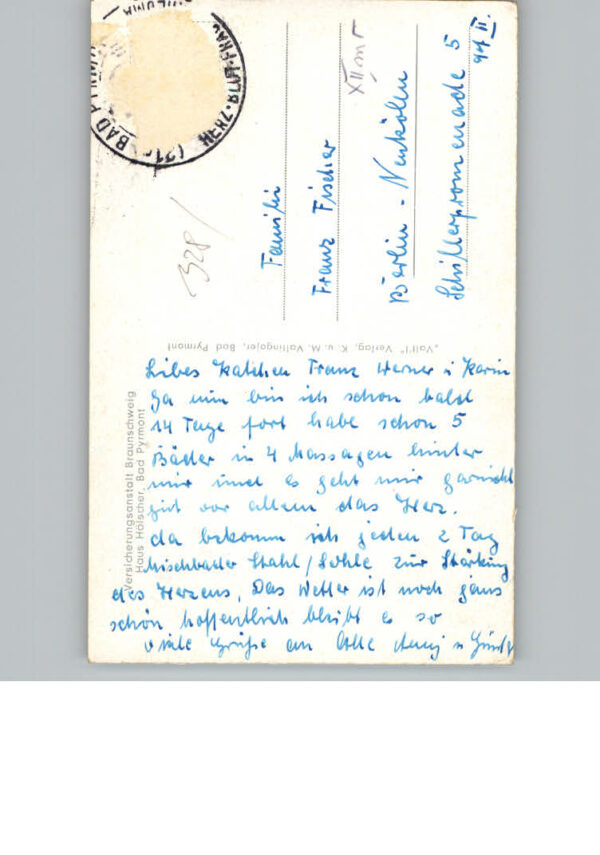 BAD P
HERZ · BLUT · FRAU
(21
328/
XII
Familie
Franz Fischer
Berlin - Neukölln
Schillerpromenade 5
II.
Versicherungsanstalt Braunschweig
Haus Hölscher, Bad Pyrmont
Verlag, K. u. M. Valtingojer, Bad Pyrmont
Libes Katchen Franz Werner u Karin
Ja nun bin ich schon bald
14 Tage fort habe schon 5
Bäder u 4 Massagen hinter
mir und es geht mir garnicht
gut vor allem das Herz.
da bekomm ich jeden 2 Tag
Mischbäder Stahl/Sohle zur Stärkung
des Herzens. Das Wetter ist noch ganz
schön hoffentlich bleibt es so
viele Grüße an Alle